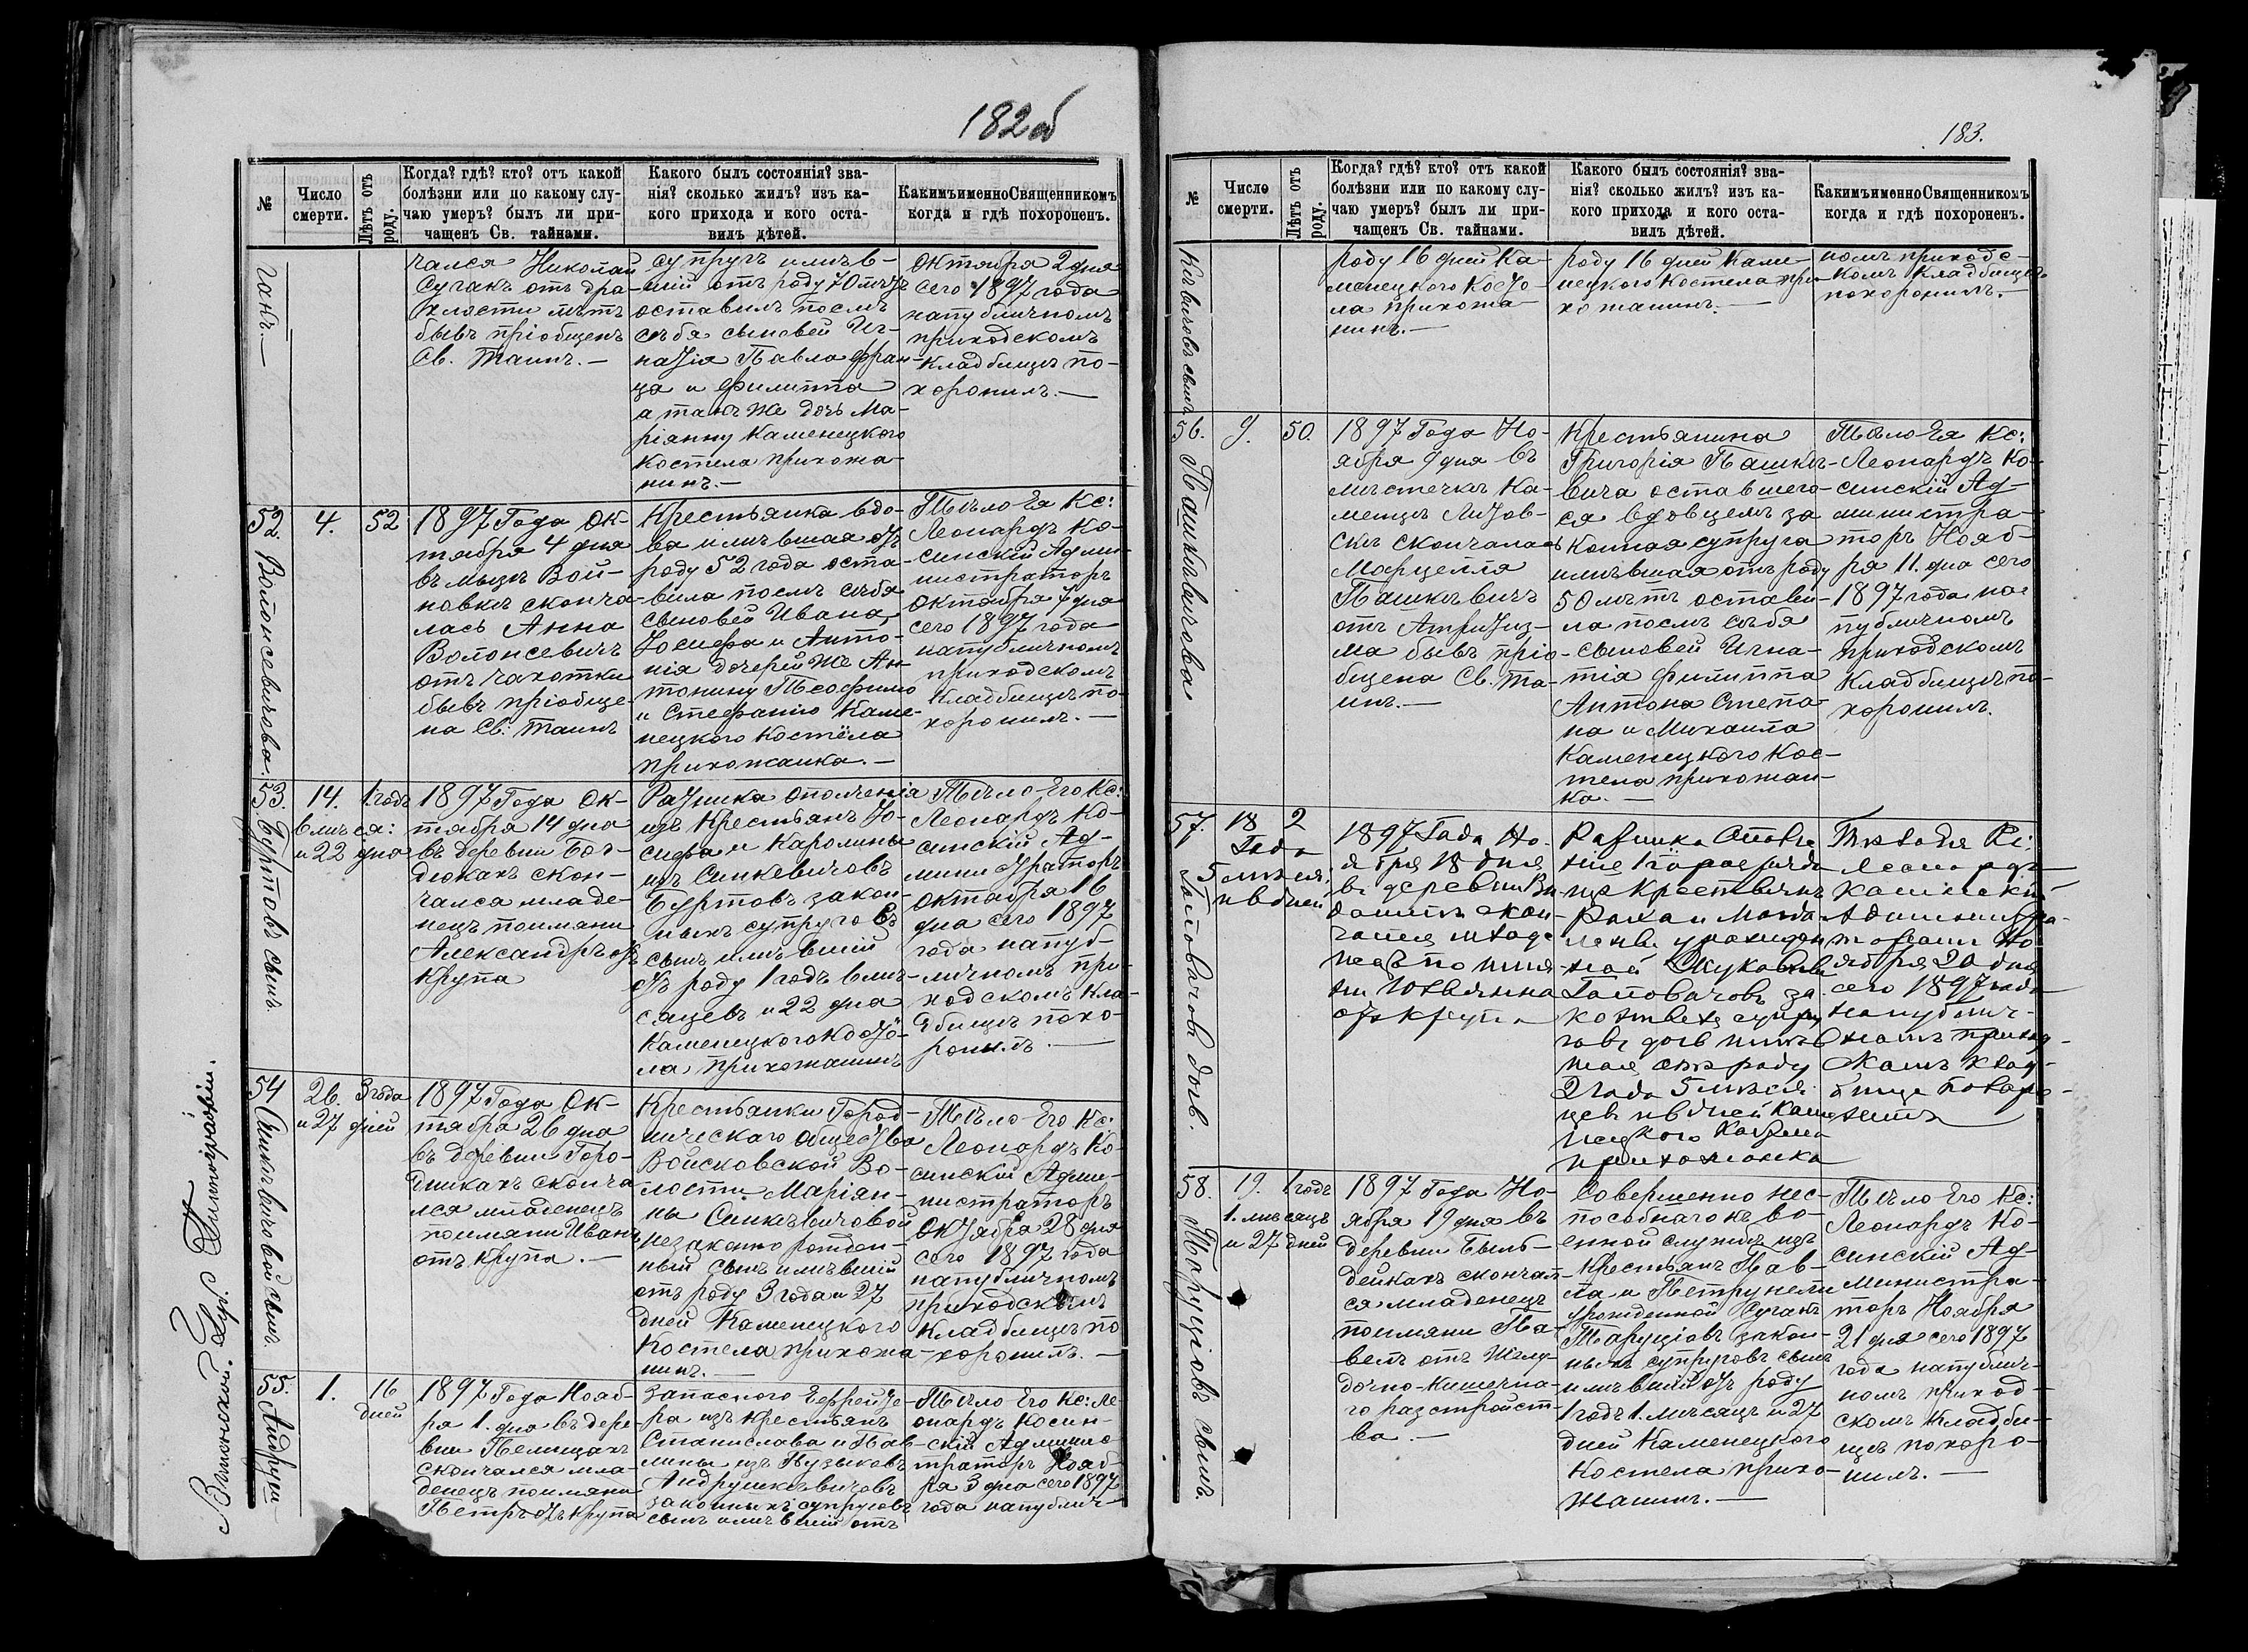 182об
№
Число
смерти.
Лѣтъ отъ
роду.
Когда? гдѣ? кто? отъ какой
болѣзни или по какому слу-
чаю умеръ? былъ ли при-
чащенъ Св. тайнами.
Какого былъ состоянія? зва-
нія? сколько жилъ? изъ ка-
кого прихода и кого оста-
вилъ дѣтей.
Какимъ именно Священникомъ
когда и гдѣ похороненъ.
чался Николай
Сучакъ отъ дря-
хлости лѣтъ
бывъ пріобщенъ
Св. Таинъ.—
супругъ имѣв-
шій отъ роду 70 лѣтъ
оставилъ послѣ
себя сыновей Иг-
натія Павла Фран-
ца и Филиппа
а такъ же дочь Ма-
ріанну Каменецкого
костела прихожа-
нинъ.—
Октября 2 дня
сего 1897 года
на публичномъ
приходскомъ
Кладбищѣ по-
хоронилъ.—
52.
4.
52
1897 Года Ок-
тября 4 дня
въ мызѣ Вой-
новкѣ сконча-
лась Анна
Волонсевичъ
отъ чахотки
бывъ пріобще-
на Св. Таинъ
Крестьянка вдо-
ва имѣвшая отъ
роду 52 года оста-
вила послѣ себя
сыновей Ивана,
Іосифа и Анто-
нія дочерей же Ан-
тонину Теофилю
и Стефанію Каме-
нецкого Костёла
прихожанка.—
Тѣло Ея Кс:
Леонардъ Ко-
синскій Адми-
нистраторъ
Октября 7 дня
сего 1897 года
на публичномъ
приходскомъ
Кладбищѣ по-
хоронилъ.—
Волонсевичова.
53.
14.
1 годъ
6 мѣся:
и 22 дня
1897 Года Ок-
тября 14 дня
въ деревни Бов-
дюкахъ скон-
чался младе-
нецъ по имени
Александръ отъ
Крупа
Ратника ополченія
изъ Крестьянъ Іо-
сифа и Каролины
изъ Синкевичовъ
Буртовъ закон-
ныхъ супруговъ
сынъ имѣвшій
отъ роду 1 годъ 6 мѣ-
сяцевъ и 22 дня
Каменецкого Косте-
ла прихожанинъ
Тѣло Его Кс:
Леонардъ Ко-
синскій Ад-
министраторъ
Октября 16
дня сего 1897
года на пуб-
личномъ при-
ходскомъ Кла-
дбищѣ похо-
ронилъ.—
Буртовъ сынъ.
54
26.
3 года
и 27 дней
1897 Года Ок-
тября 26 дня
въ деревни Горо-
дникахъ сконча
лся младенецъ
по имяни Иванъ
отъ крупа.—
Крестьянки Город-
ническаго общества
Войсковской Во-
лости Маріан-
ны Синкѣвичовой
незаконно рожден-
ный сынъ имѣвшій
отъ роду 3 года и 27
дней Каменецкого
Костела прихожа-
нинъ.—
Тѣло Его Кс:
Леонардъ Ко-
синскій Адми-
нистраторъ
Октября 28 дня
сего 1897 года
на публичномъ
приходскомъ
Кладбищѣ по
хоронилъ.—
Синкѣвичовой сынъ.
55.
1.
16
дней
1897 Года Нояб-
ря 1. дня въ дере-
вни
скончался мла-
денецъ по имяни
Петръ отъ крупа
Запасного Ефрейто-
ра изъ крестьянъ
Станислава и Пав-
лины изъ Пузыковъ
Андрушкѣвичовъ
законныхъ супруговъ
сынъ имѣвшій отъ
Тѣло Его Кс: Ле-
онардъ Косин-
скій Админис-
траторъ Нояб-
ря 3 дня сего 1897
года на публич-
Андруш-
Виленской Губ.
183.
№
Число
смерти.
Лѣтъ отъ
роду.
Когда? гдѣ? кто? отъ какой
болѣзни или по какому слу-
чаю умеръ? былъ ли при-
чащенъ Св. тайнами.
Какого былъ состоянія? зва-
нія? сколько жилъ? изъ ка-
кого прихода и кого оста-
вилъ дѣтей.
Какимъ именно Священникомъ
когда и гдѣ похороненъ.
кѣвичовъ сынъ
роду 16 дней Ка-
менецкого Косте-
ла прихожа-
нинъ.—
роду 16 дней Каме-
нецкого Костела при-
хожанинъ.—
номъ приходс-
комъ Кладбищѣ
похоронилъ.—
56.
9.
50.
1897 Года Но-
ября 9 дня въ
мѣстечкѣ Ка-
менцѣ Литов-
скѣ скончалась
Марцелля
Пашкѣвичъ
отъ
бывъ пріо-
бщена Св. Та-
инъ.—
Крестьянина
Григорія Пашкѣ-
вича оставшаго-
ся вдовцемъ за
конная супруга
имѣвшая отъ роду
50 лѣтъ остави-
ла послѣ себя
сыновей Игна-
тія Филиппа
Антона Степа-
на и Михаила
Каменецкого Кос-
тела прихожан-
ка.—
Тѣло Ея Кс:
Леонардъ Ко-
синскій Ад-
министра-
торъ Нояб-
ря 11. дня сего
1897 года на
публичномъ
приходскомъ
Кладбищѣ по-
хоронилъ.
Пашкѣвичова
57.
18
2
Года
5 мѣся:
и 6 дней
1897 Года Но-
ября 18 дня
въ деревни
скон-
чался младе-
нецъ по имя-
ни
отъ крупа
Ратника Ополче-
нія 1го разряда
изъ Крестьянъ
и Магда-
лены урожден-
ной
за-
конныхъ супру-
говъ дочь имѣв-
шая отъ роду
2 года 5 мѣся-
цев и 6 дней Каме
нецкого Костела
прихожанка
Тѣло Ея Кс:
Леонардъ
Косинскій
Администра-
торъ Но-
ября 20 дня
сего 1897 года
на публич-
номъ приход-
скомъ клад-
бище похоро-
нилъ
дочь.
58.
19.
1 годъ
1. мѣсяцъ
и 27 дней
1897 Года Но-
ября 19 дня въ
деревни Быль-
дейкахъ скончал-
ся младенецъ
по имяни Па-
велъ отъ Желу-
дочно-кишечна-
го разстройст-
ва.—
Совершенно нес-
пособнаго къ во-
енной службѣ изъ
Крестьянъ Пав-
ла и Петрунели
урожденной Сучакъ
Таруціовъ закон-
ныхъ супруговъ сынъ
имѣвшій отъ роду
1 годъ 1. мѣсяцъ и 27
дней Каменецкого
Костела прихо-
жанинъ.—
Тѣло Его Кс:
Леонардъ Ко-
синскій Ад-
министра-
торъ Ноября
21 дня сего 1897
года на публич-
номъ приход-
скомъ Кладби-
щѣ похоро-
нилъ.—
Таруціовъ сынъ.